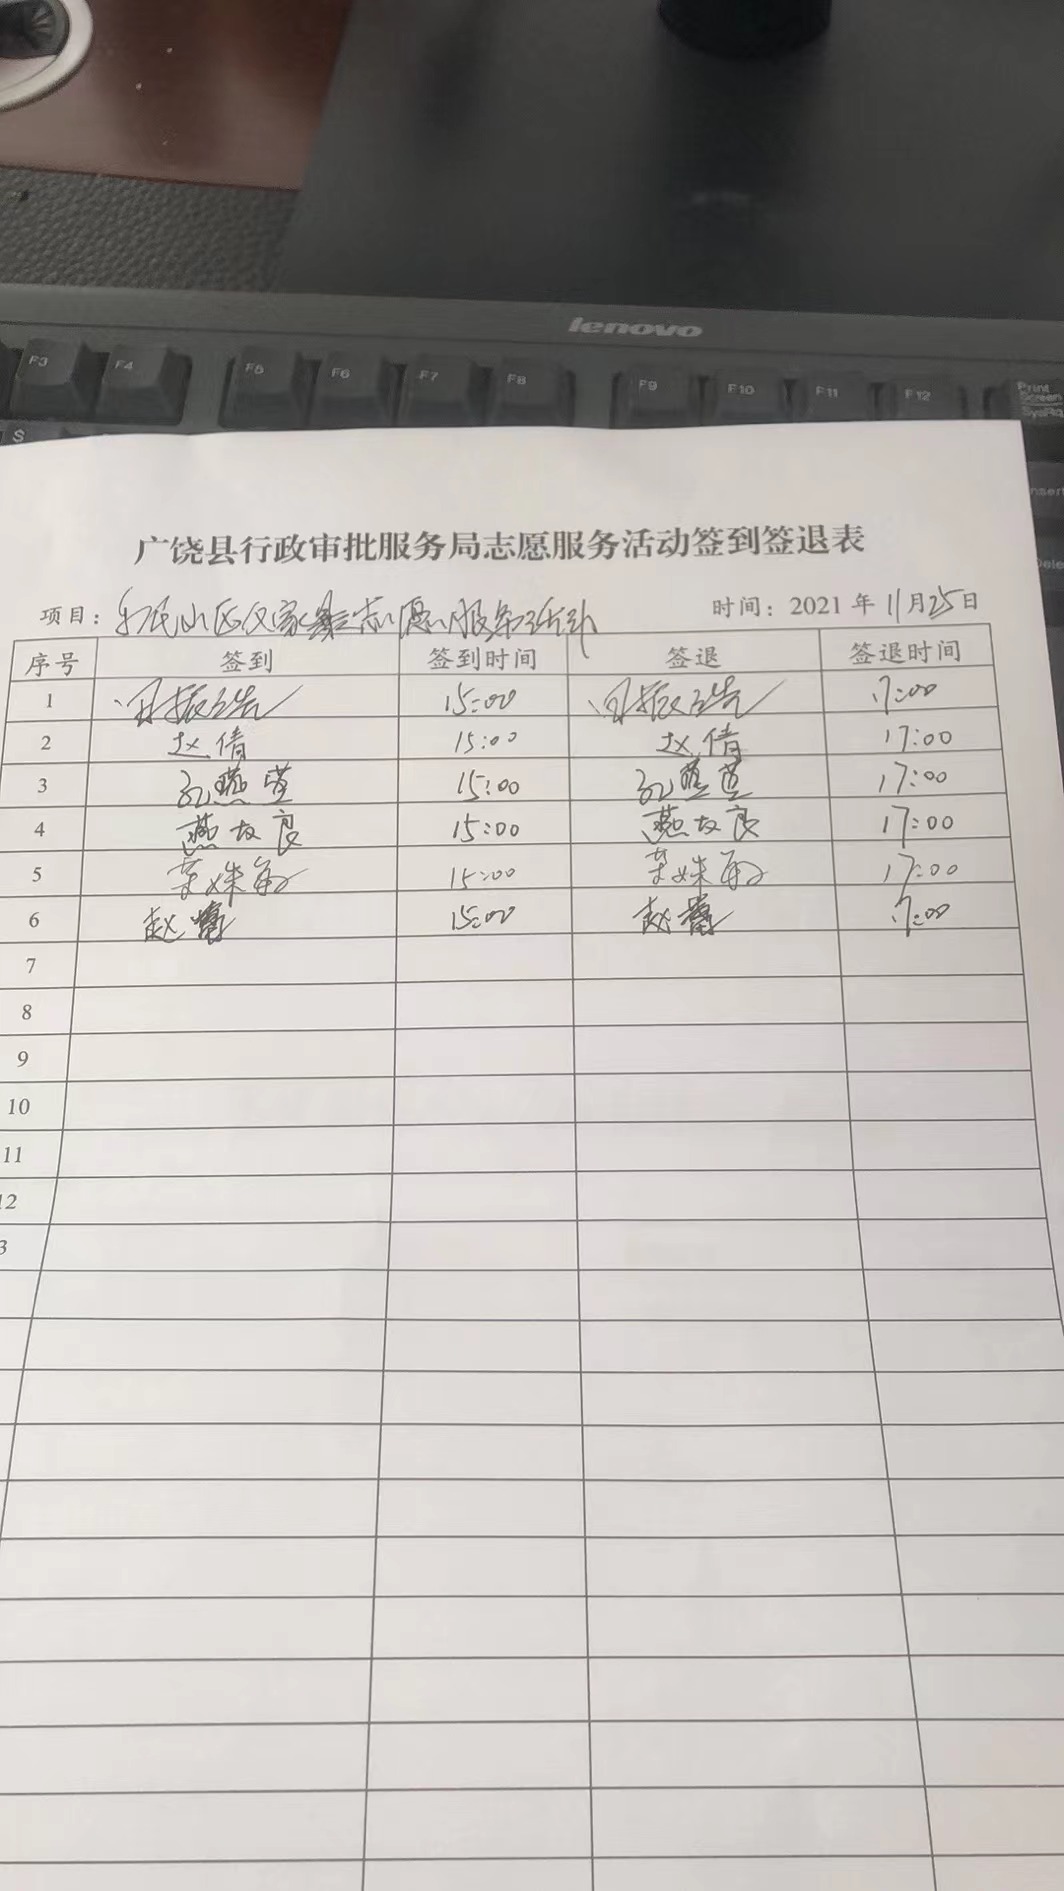 lenovo
F3 F4 F5 F6 F7 F8 F9 F10 F11 F12 Print Screen SysRq
S
Insert
Dele
广饶县行政审批服务局志愿服务活动签到签退表
项目：志愿服务活动 时间：2021年11月25日
序号 签到 签到时间 签退 签退时间
1 15:00 17:00
2 赵倩 15:00 赵倩 17:00
3 15:00 17:00
4 燕友良 15:00 燕友良 17:00
5 15:00 17:00
6 赵 15:00 赵 17:00
7
8
9
10
11
12
3